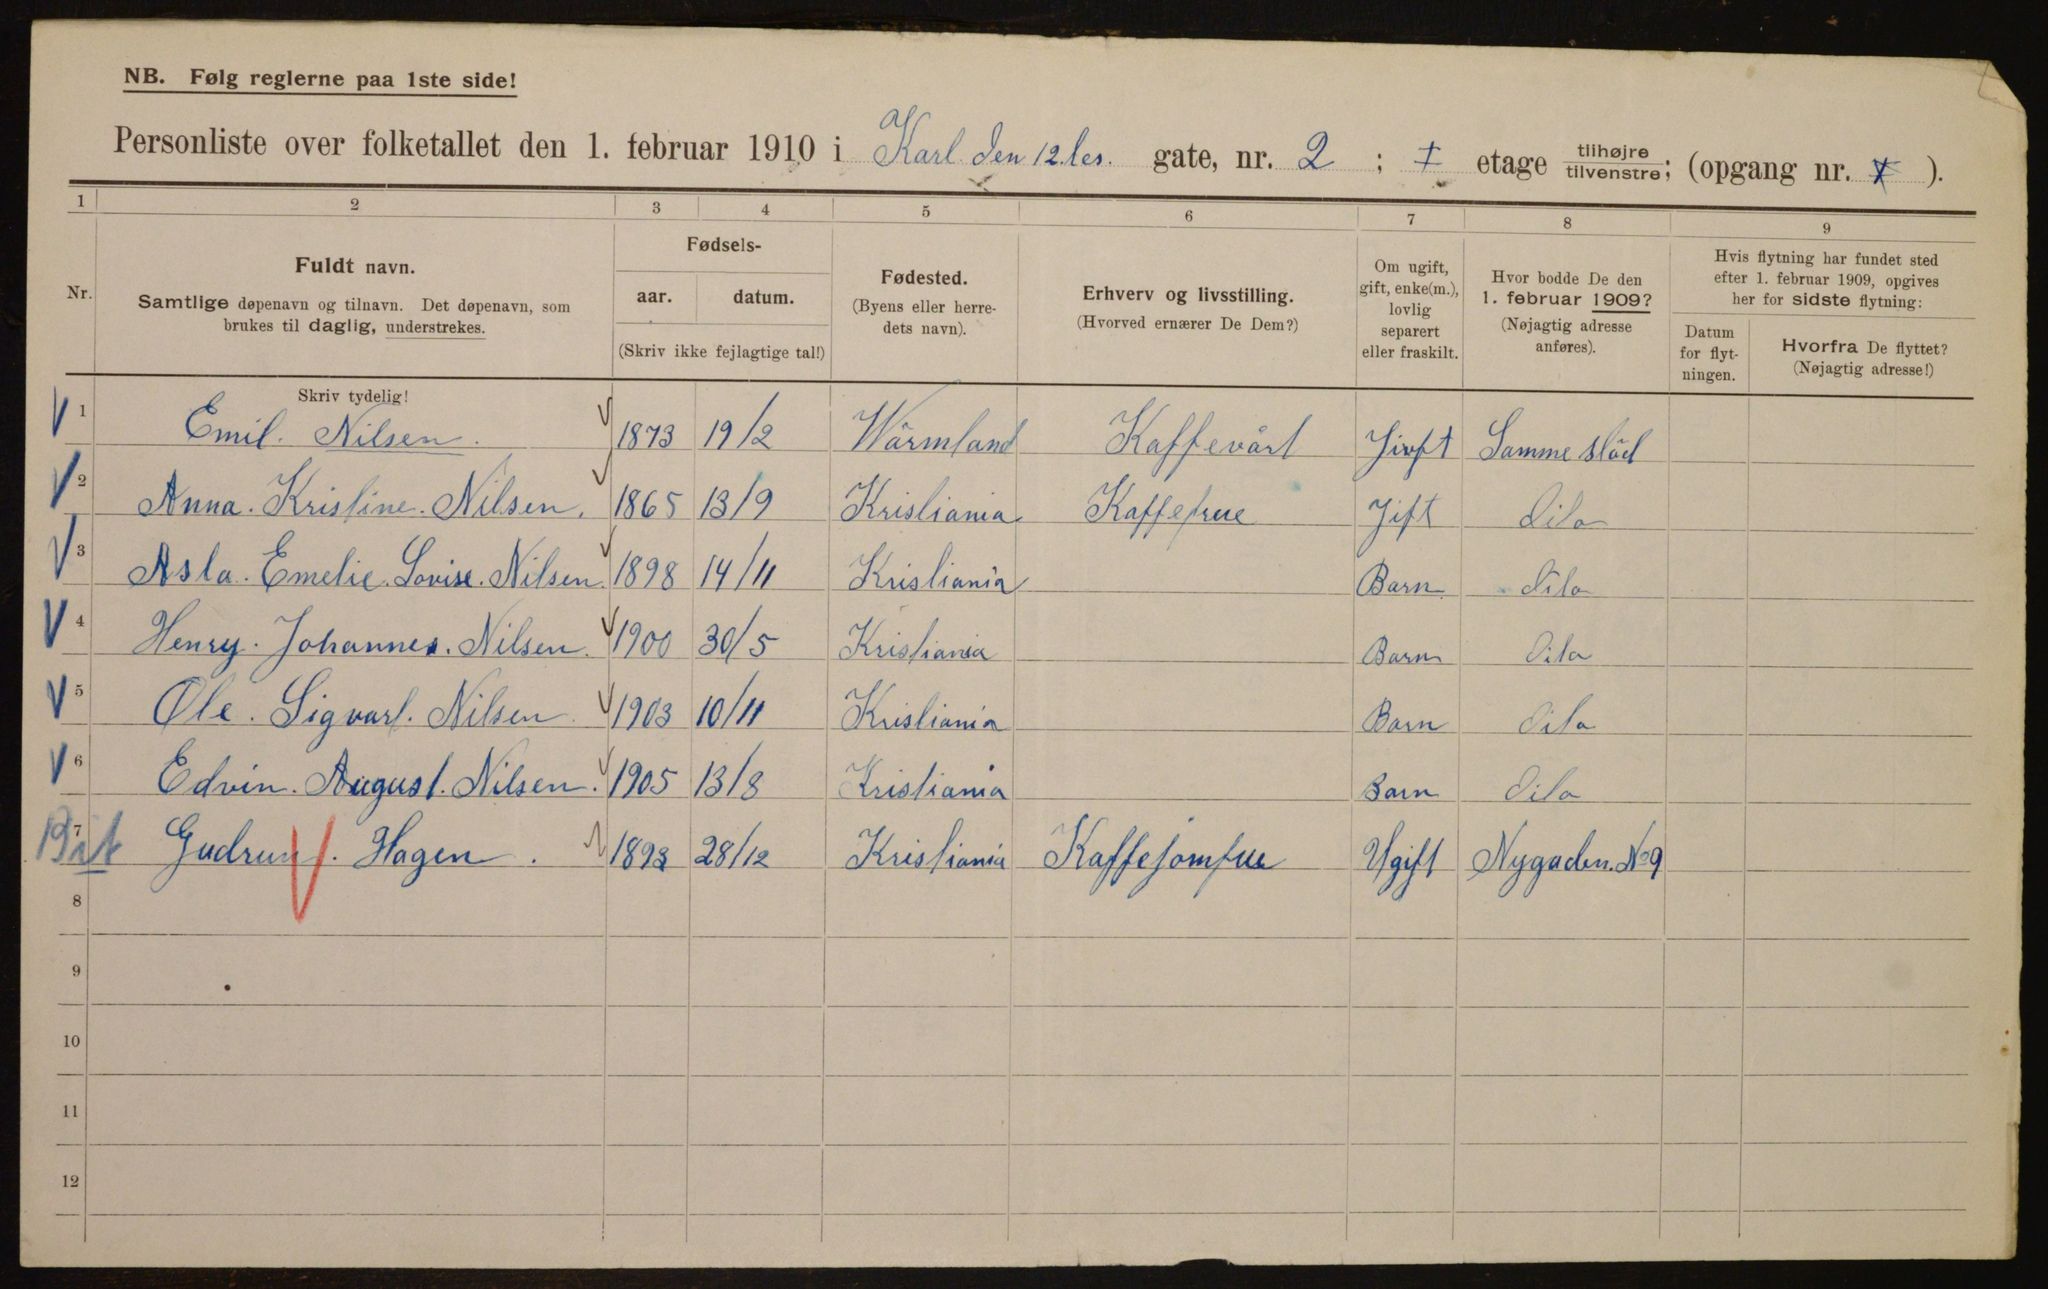 NB. Følg reglerne paa 1ste side!
Personliste over folketallet den 1. februar 1910 i Karl den 12.tes. gate, nr. 2 ; I etage tilhøjre tilvenstre; (opgang nr. ).
1 2 3 4 5 6 7 8 9
Nr. Fuldt navn. Samtlige døpenavn og tilnavn. Det døpenavn, som brukes til daglig, understrekes.
Fødsels- aar. datum. (Skriv ikke fejlagtige tal!)
Fødested. (Byens eller herredets navn).
Erhverv og livsstilling. (Hvorved ernærer De Dem?)
Om ugift, gift, enke(m.), lovlig separert eller fraskilt.
Hvor bodde De den 1. februar 1909? (Nøjagtig adresse anføres).
Hvis flytning har fundet sted efter 1. februar 1909, opgives her for sidste flytning:
Datum for flytningen. Hvorfra De flyttet? (Nøjagtig adresse!)
Skriv tydelig!
1 Emil. Nilsen. 1873 19/2 Wärmland Kaffevärt Jivft Samme städ
2 Anna. Kristine. Nilsen. 1865 13/9 Kristiania Kaffefrue Jift Dito
3 Asta. Emelie. Lovise. Nilsen. 1898 14/11 Kristiania Barn Dito
4 Henry. Johannes. Nilsen. 1900 30/5 Kristiania Barn Dito
5 Ole. Sigvart. Nilsen. 1903 10/11 Kristiania Barn Dito
6 Edvin. August. Nilsen. 1905 13/8 Kristiania Barn Dito
7 Gudrun. Hagen. 1893 28/12 Kristiania Kaffejomfru Ugift Nygaden. No 9
8
9
10
11
12